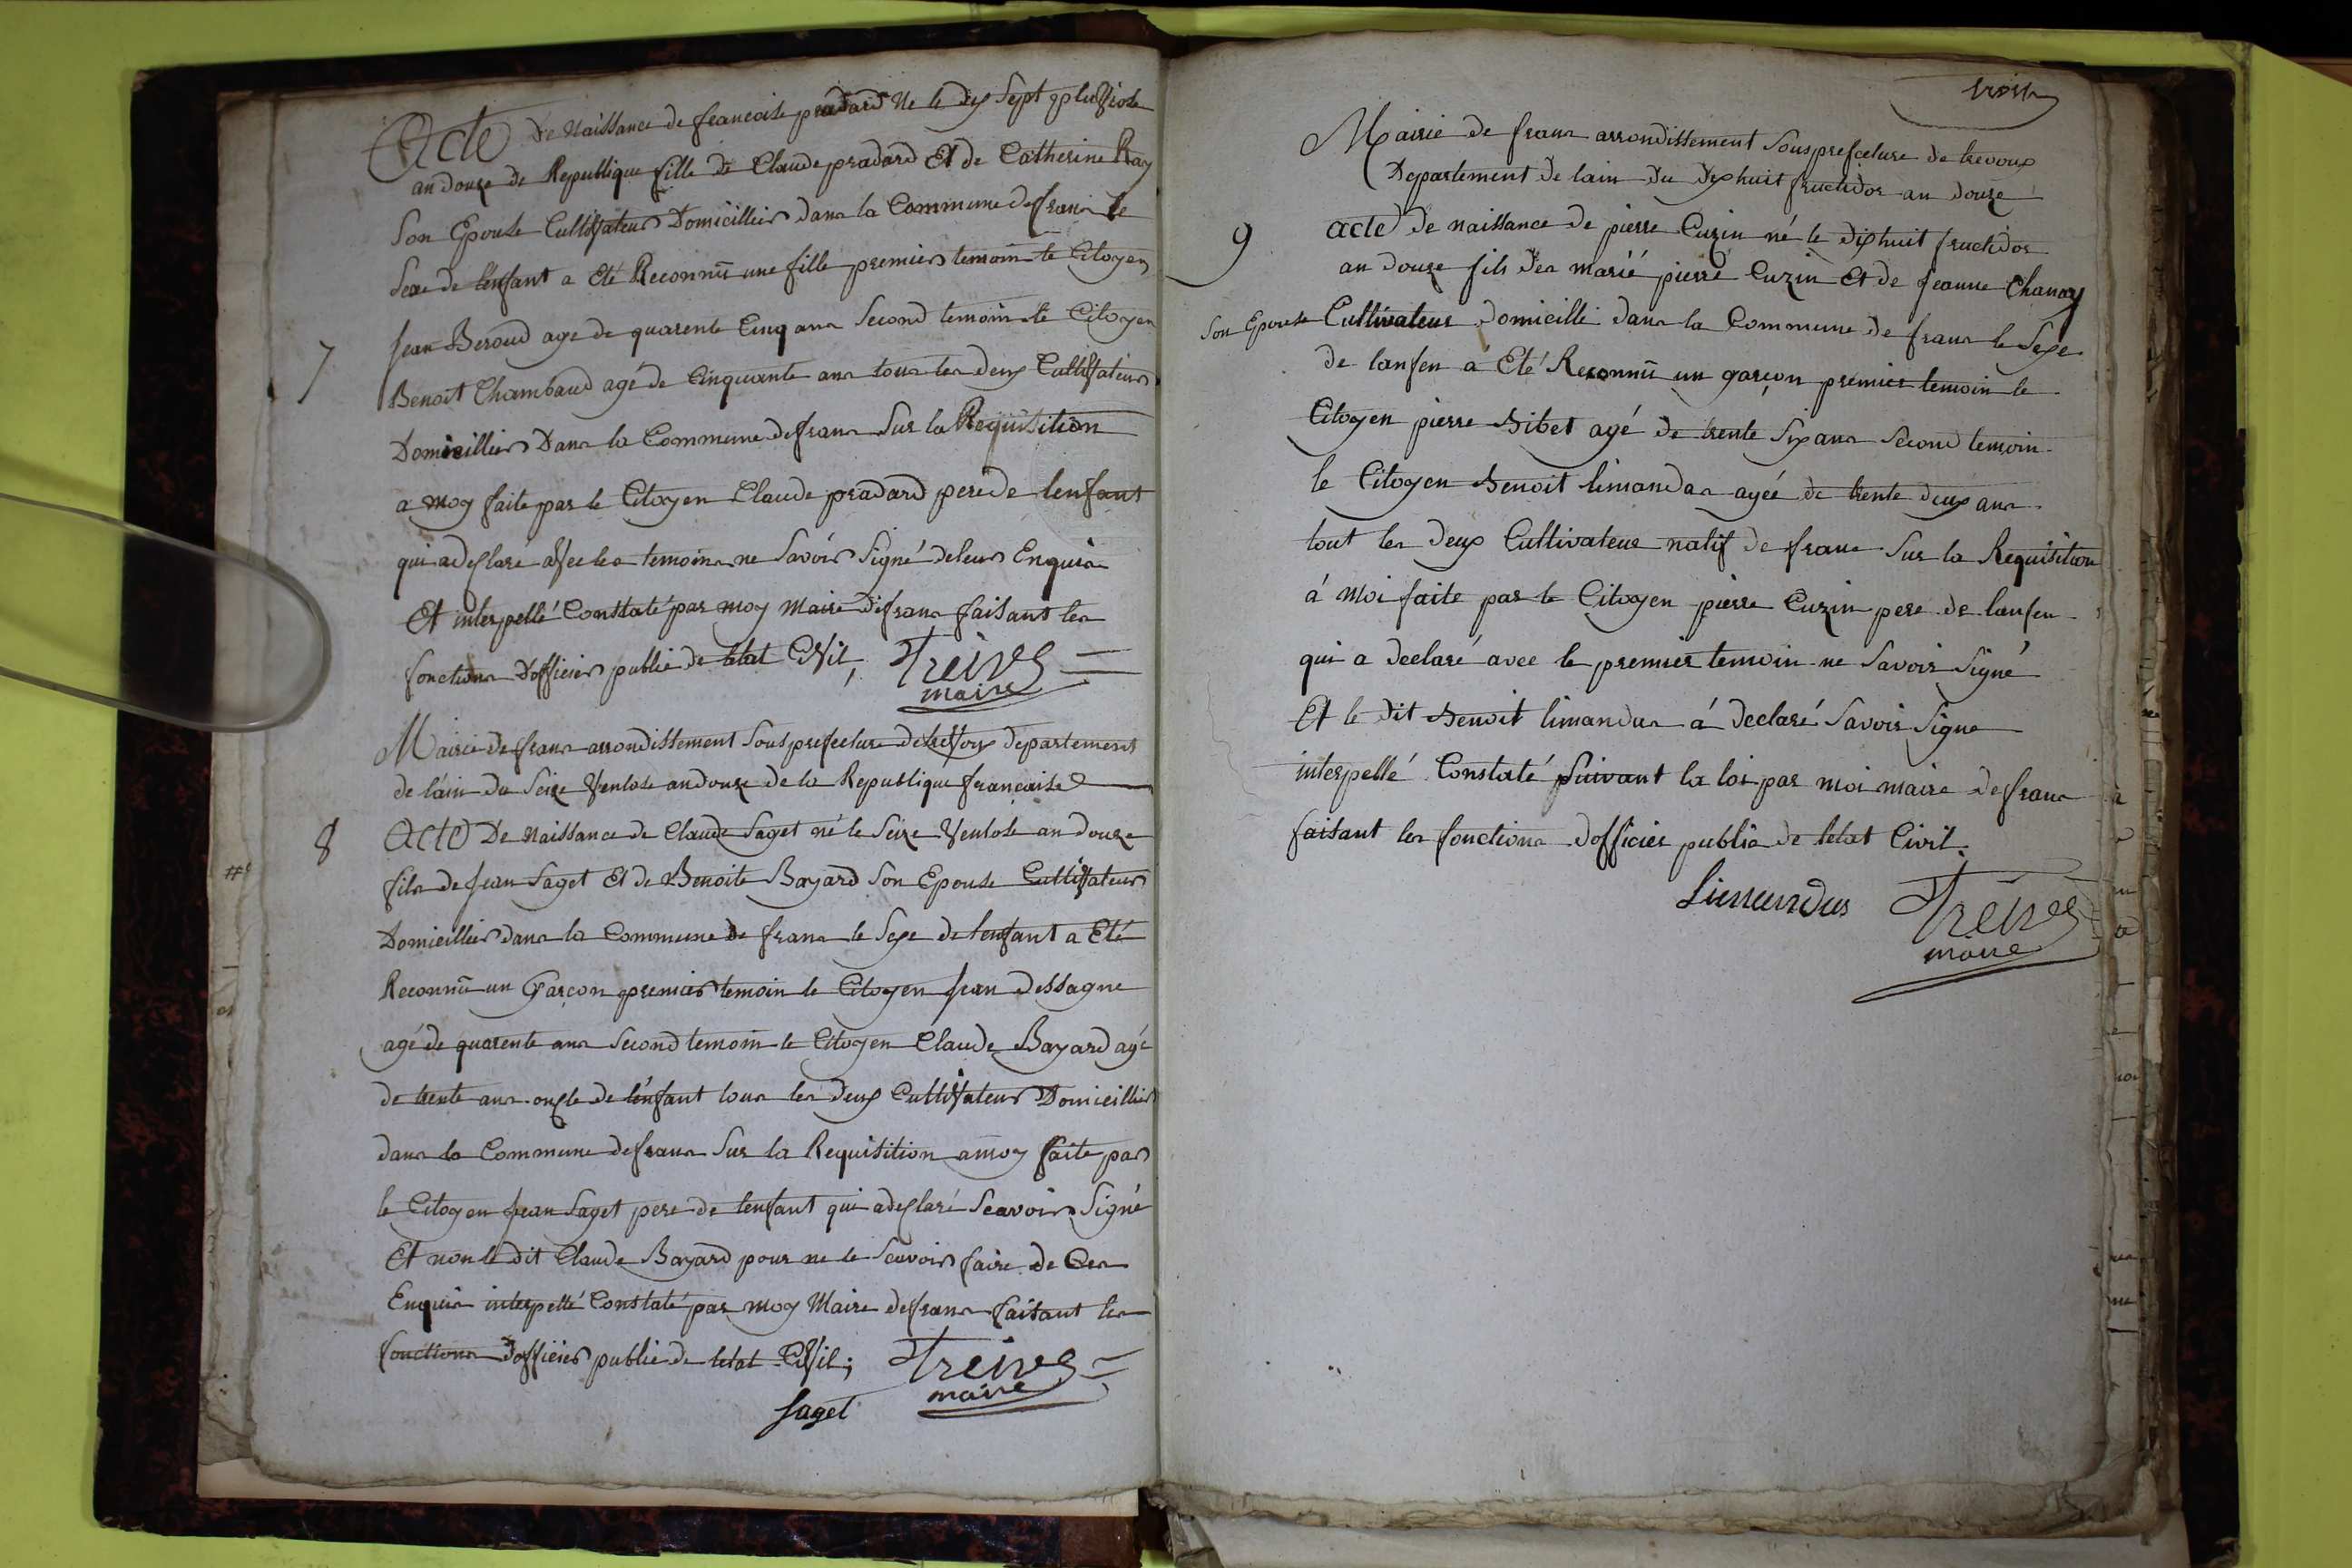 Acte De Naissance de francoise pradard Ne le dix Sept pluviose
an douze de Republique fille de Claude pradard Et de Catherine Ray
Son Epouse Cultivateur Domicillier dans la Commune de frans le
Sexe de lenfant a Eté Reconnü une fille premier temoin le Citoyen
7 Jean Beroud age de quarente Cinq ans Second temoin le Citoyen
Benoit Chambaud agé de Cinquante ans tous les deux Cultivateur
Domicillier Dans la Commune de frans Sur la Requisition
a moy faite par le Citoyen Claude pradard pere de lenfant
qui a declaré avec les temoins ne Savoir Signé de leur Enquis
Et interpellé Constaté par moy maire de frans faisant les
fonctions Dofficier public de letat Civil,
Treives
maire
Mairie de frans arrondissement Sousprefecture de trevoux departement
de lain du Seize Ventose an douze de la Republique francaise
8 Acte De Naissance de Claude Saget né le Seize Ventose an douze
fils de Jean Saget Et de Benoite Bayard Son Epouse Cultivateur
Domicillier dans la Commune de frans le Sexe de lenfant a Eté
Reconnü un Garcon premier temoin le Citoyen Jean dessagne
agé de quarente ans Second temoin le Citoyen Claude Bayard agé
de trente ans oncle de lenfant tous les deux Cultivateur Domicillier
dans la Commune de frans Sur la Requisition a moy faite par
le Citoyen Jean Saget pere de lenfant qui a declaré Scavoir Signé
Et non le dit Claude Bayard pour ne le Scavoir faire de Ces
Enquis interpellé Constaté par moy Maire de frans faisant les
fonctions Dofficier public de letat Civil;
Treives
maire
Saget
trois
Mairie de frans arrondissement Sousprefecture de trevoux
Departement de lain du dixhuit fructidor an douze
9 acte de naissance de pierre Cuzin né le dixhuit fructidor
an douze fils des marié pierre Cuzin Et de Jeanne Chanay
Son Epouse Cultivateur domicillé dans la Commune de frans le Sexe
de lanfen a Eté Reconnü un garçon premier temoin le
Citoyen pierre Sibet agé de trente Six ans Second temoin
le Citoyen Benoit limandas agéé de trente deux ans
tout les deux Cultivateur natif de frans Sur la Requisition
á Moi faite par le Citoyen pierre Cuzin pere de lanfen
qui a declaré avec le premier temoin ne Savoir Signé
Et le dit Benoit limandas á declaré Savoir Signe
interpellé Constaté Suivant la loi par moi maire de frans
faisant les fonctions dofficier public de letat Civil.
Limandas
Treives
maire